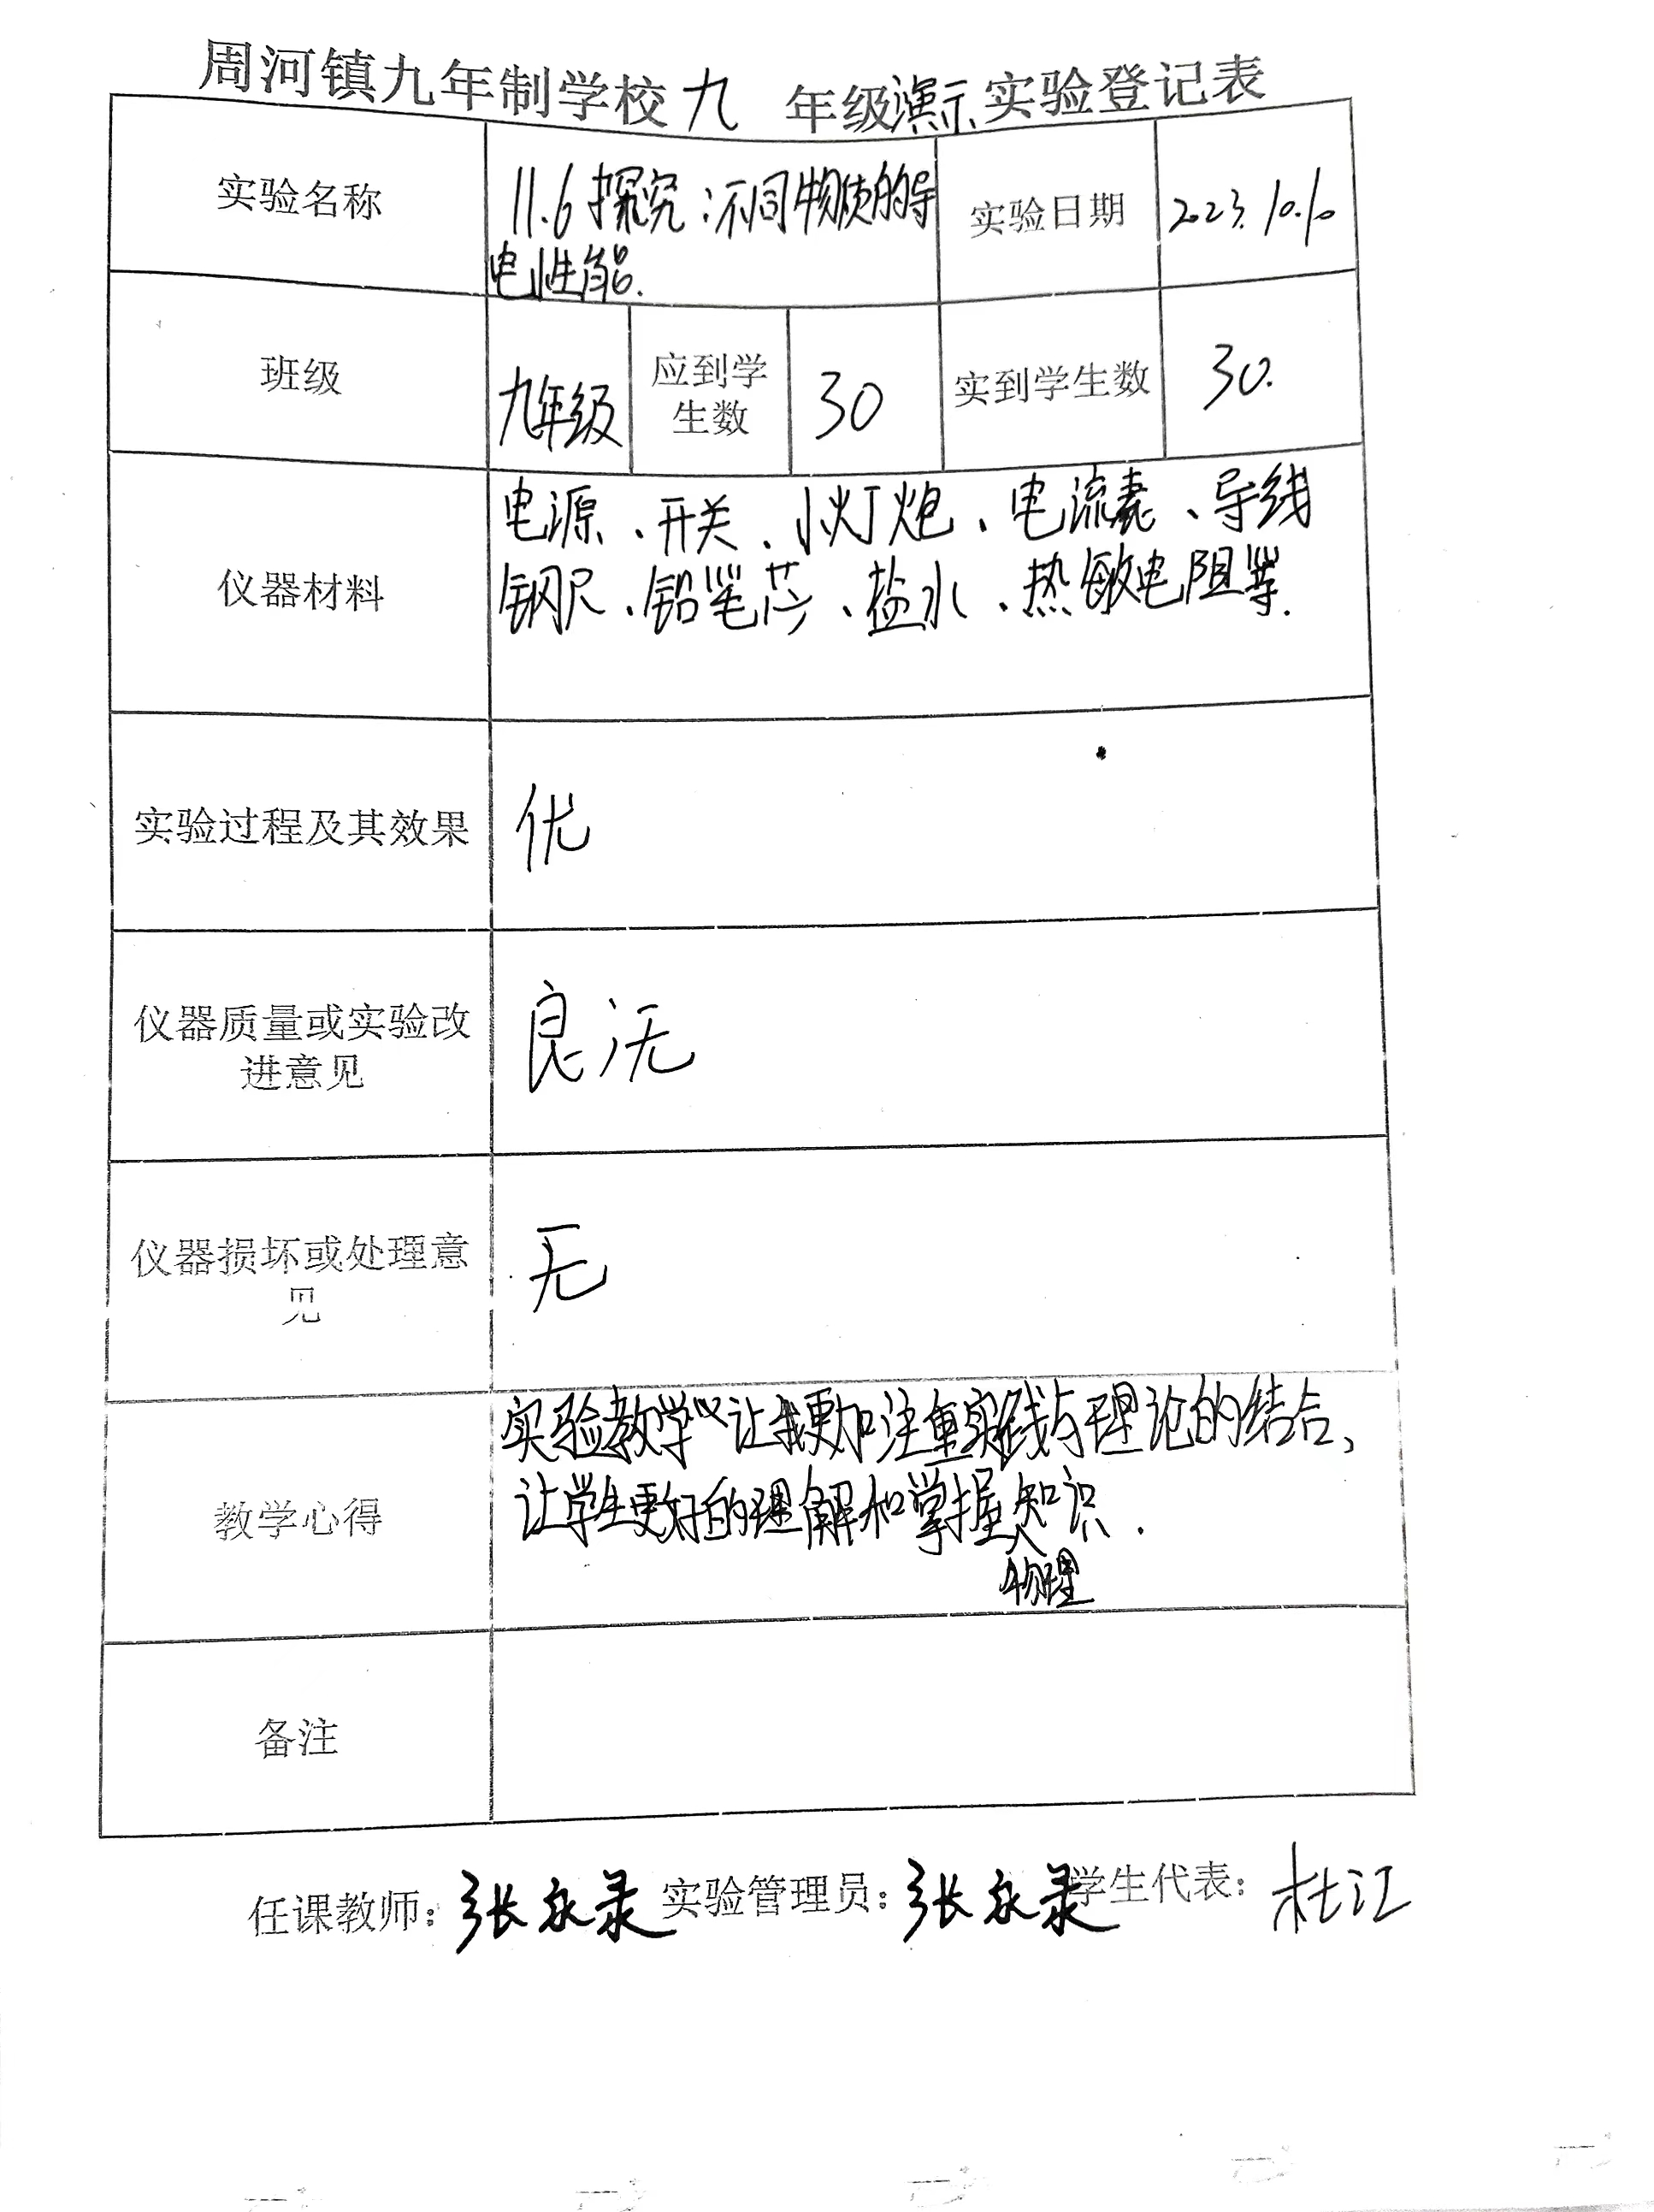 周河镇九年制学校九 年级演示实验登记表
实验名称
11.6探究:不同物质的导
电性能.
实验日期
2023.10.10
班级
九年级
应到学
生数
30
实到学生数
30.
仪器材料
电源、开关、小灯炮、电流表、导线
钢尺、铅笔芯、盐水、热敏电阻等.
实验过程及其效果
优
仪器质量或实验改
进意见
良 无
仪器损坏或处理意
见
无
教学心得
实验教学让我更加注重实践与理论的结合、
让学生更好的理解和掌握物理知识.
备注
任课教师:张永录 实验管理员:张永录 学生代表:杜江